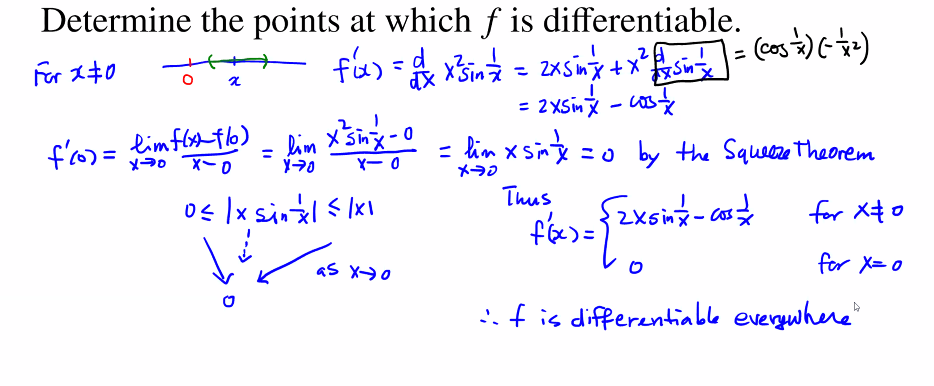 Determine the points at which f is differentiable.
For x≠0 0 x f'(x) = d/dx x² sin 1/x = 2x sin 1/x + x² d/dx sin 1/x = (cos 1/x)(-1/x²)
= 2x sin 1/x - cos 1/x
f'(0) = lim x→0 f(x)-f(0) / x-0 = lim x→0 x² sin 1/x - 0 / x-0 = lim x→0 x sin 1/x = 0 by the Squeeze Theorem
0 ≤ |x sin 1/x| ≤ |x|
as x→0
0
Thus
f'(x) = { 2x sin 1/x - cos 1/x for x≠0
0 for x=0
∴ f is differentiable everywhere